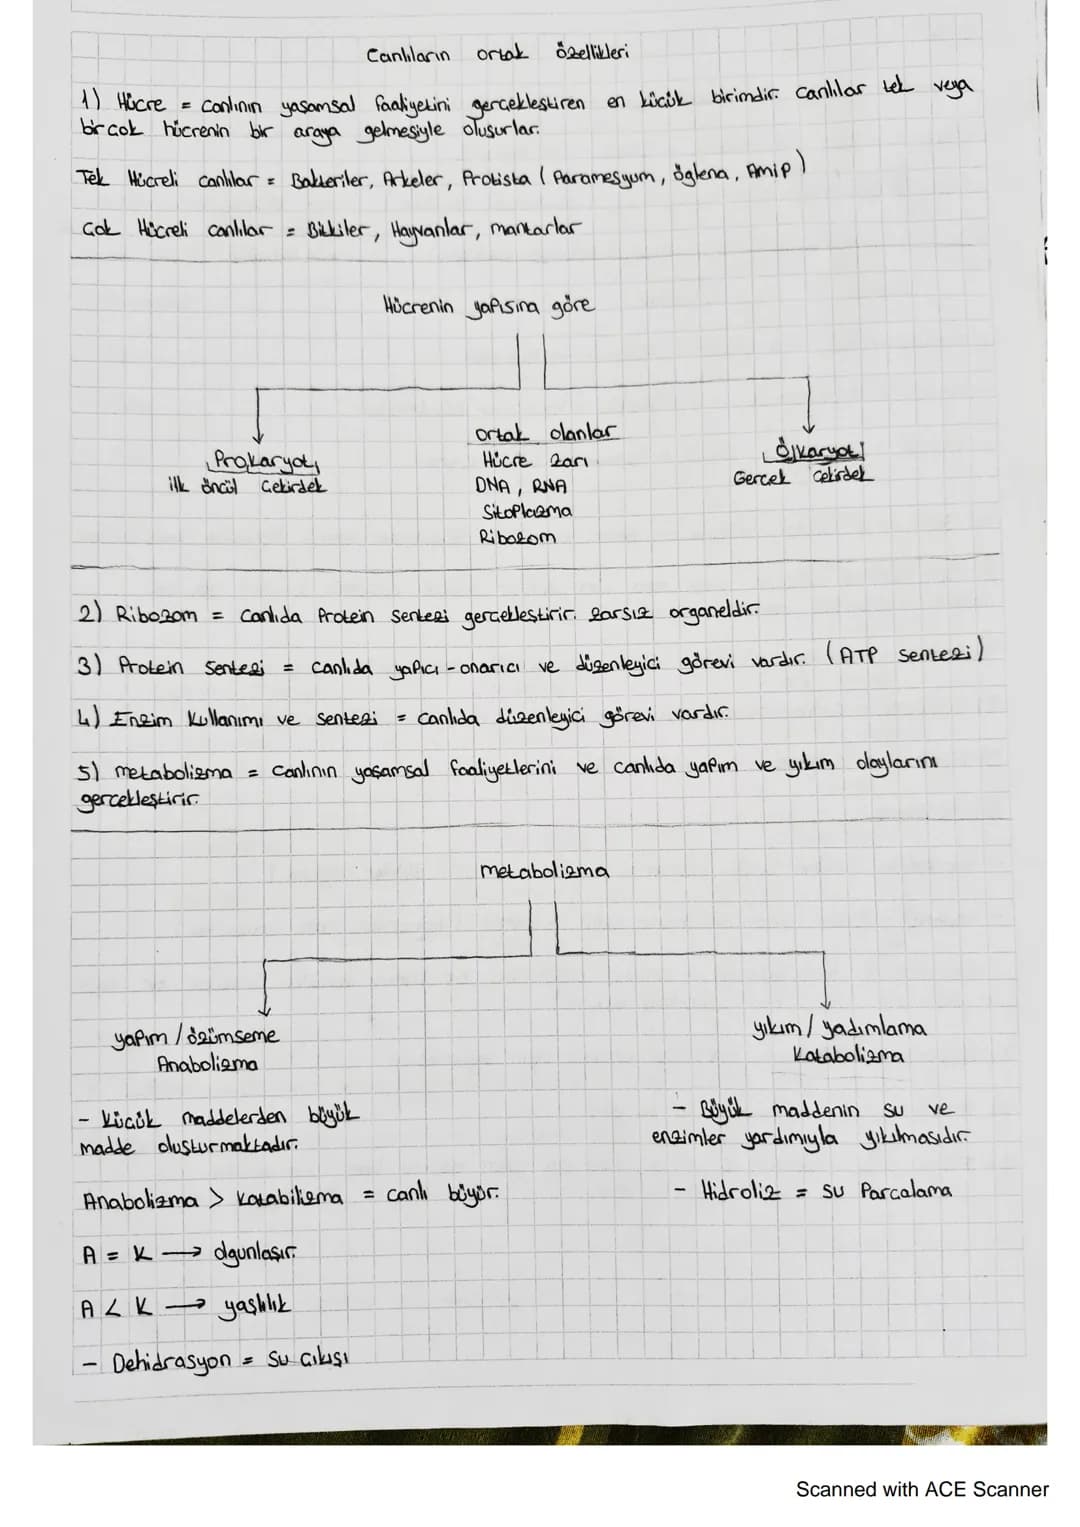 Canlıların ortak özellikleri
1) Hücre = canlının yaşamsal faaliyetini gerçekleştiren en küçük birimdir. Canlılar tek veya
birçok hücrenin bir araya gelmesiyle oluşurlar.
Tek Hücreli canlılar = Bakteriler, Arkeler, Protista (Paramesyum, öglena, Amip)
Çok Hücreli canlılar = Bitkiler, Hayvanlar, mantarlar
Hücrenin yapısına göre
Prokaryot
ilk öncül Çekirdek
ortak olanlar
Hücre zarı
DNA, RNA
Sitoplazma
Ribozom
Ökaryot
Gerçek Çekirdek
2) Ribozom = canlıda Protein Sentezi gerçekleştirir. zarsız organeldir.
3) Protein Sentezi = canlıda yapıcı-onarıcı ve düzenleyici görevi vardır. (ATP sentezi)
4) Enzim Kullanımı ve sentezi = canlıda düzenleyici görevi vardır.
5) metabolizma = Canlının yaşamsal faaliyetlerini ve canlıda yapım ve yıkım olaylarını
gerçekleştirir.
metabolizma
yapım / özümseme
Anabolizma
- Küçük maddelerden büyük
madde oluşturmaktadır.
Anabolizma > Katabilizma = canlı büyür.
A = K → olgunlaşır.
A < K → yaşlılık
- Dehidrasyon = su çıkışı
yıkım / yadımlama
Katabolizma
- Büyük maddenin su ve
enzimler yardımıyla yıkılmasıdır.
- Hidroliz = su Parçalama
Scanned with ACE Scanner